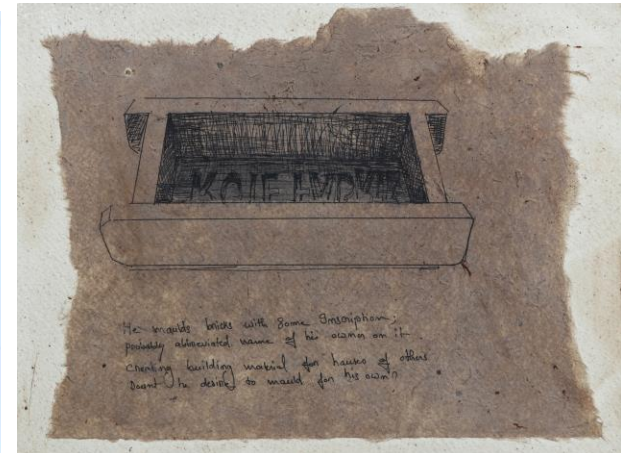 He moulds bricks with Some Inscription;
probably abbreviated name of his owner on it
creating building material for houses of others
Doesnt he desire to mould for his own?